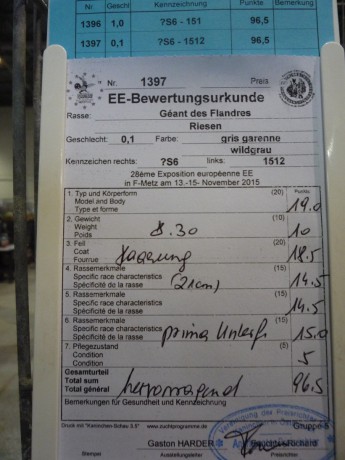 Nr. Geschl Kennzeichnung Punkte Bemerkung
1396 1,0 ?S6 - 151 96,5
1397 0,1 ?S6 - 1512 96,5
Nr. 1397 Preis
EE-Bewertungsurkunde
Rasse: Géant des Flandres
Riesen
Geschlecht: 0,1 Farbe: gris garenne
wildgrau
Kennzeichen rechts: ?S6 links: 1512
28ème Exposition européenne EE
in F-Metz am 13.-15- November 2015
1. Typ und Körperform (20) Punkte
Model and Body
Type et forme 19.0
2. Gewicht (10)
Weight 8.30 10
Poids
3. Fell (20)
Coat 18.5
Fourrue
4. Rassemerkmale (15)
Specific race characteristics (21cm) 14.5
Spécificité de la rasse
5. Rassemerkmale (15)
Specific race characteristics 14.5
Spécificité de la rasse
6. Rassemerkmale (15)
Specific race characteristics prima Unterf. 15.0
Spécificité de la rasse
7. Pflegezustand (5)
Condition 5
Condition
Gesamturteil
Total sum hervorragend 96.5
Total général
Bemerkungen für Gesundheit und Kennzeichnung
Druck mit "Kaninchen-Schau 5.5" www.zuchtprogramme.de Gruppe-8
Gaston HARDER
Stempel Ausstellungsleiter Preisrichter